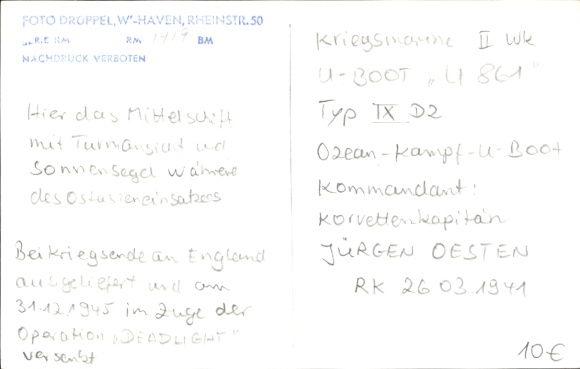 FOTO DROPPEL, W'-HAVEN, RHEINSTR. 50
RM BM
NACHDRUCK VERBOTEN
Hier das Mittelschift
mit Turmansicht und
Sonnensegel während
des Ostasieneinsatzes
Bei Kriegsende an England
ausgeliefert und am
31.12.1945 im Zuge der
Operation „DEADLIGHT"
versenkt
Kriegsmarine II WK
U-BOOT „U 861"
Typ IX D2
Ozean-Kampf-U-Boot
Kommandant:
Korvettenkapitän
JÜRGEN OESTEN
RK 26 03.1941
10€